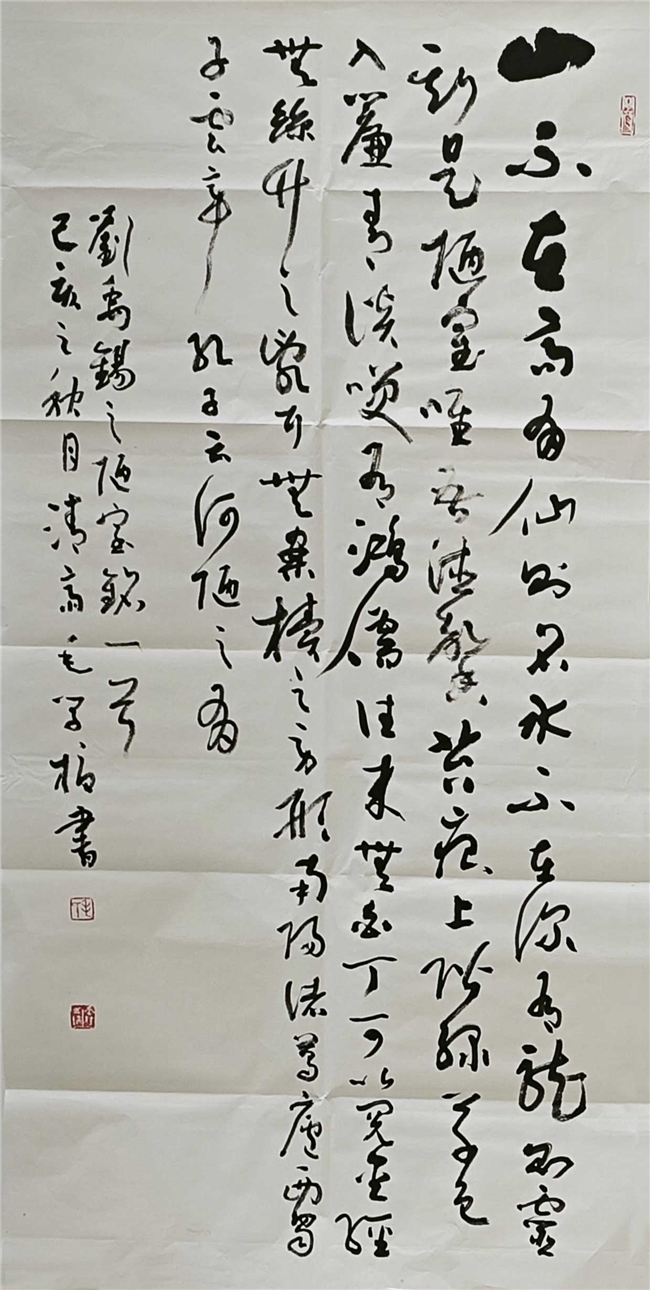 山不在高有仙則名水不在深有龍則靈
斯是陋室唯吾德馨苔痕上階緑草色
入簾青談笑有鴻儒往来無白丁可以閱金經
無絲竹之亂耳無案牘之勞形南陽諸葛廬西蜀
子雲亭 孔子云何陋之有
劉禹錫之陋室銘一首
己亥之秋月清高毛学柏書